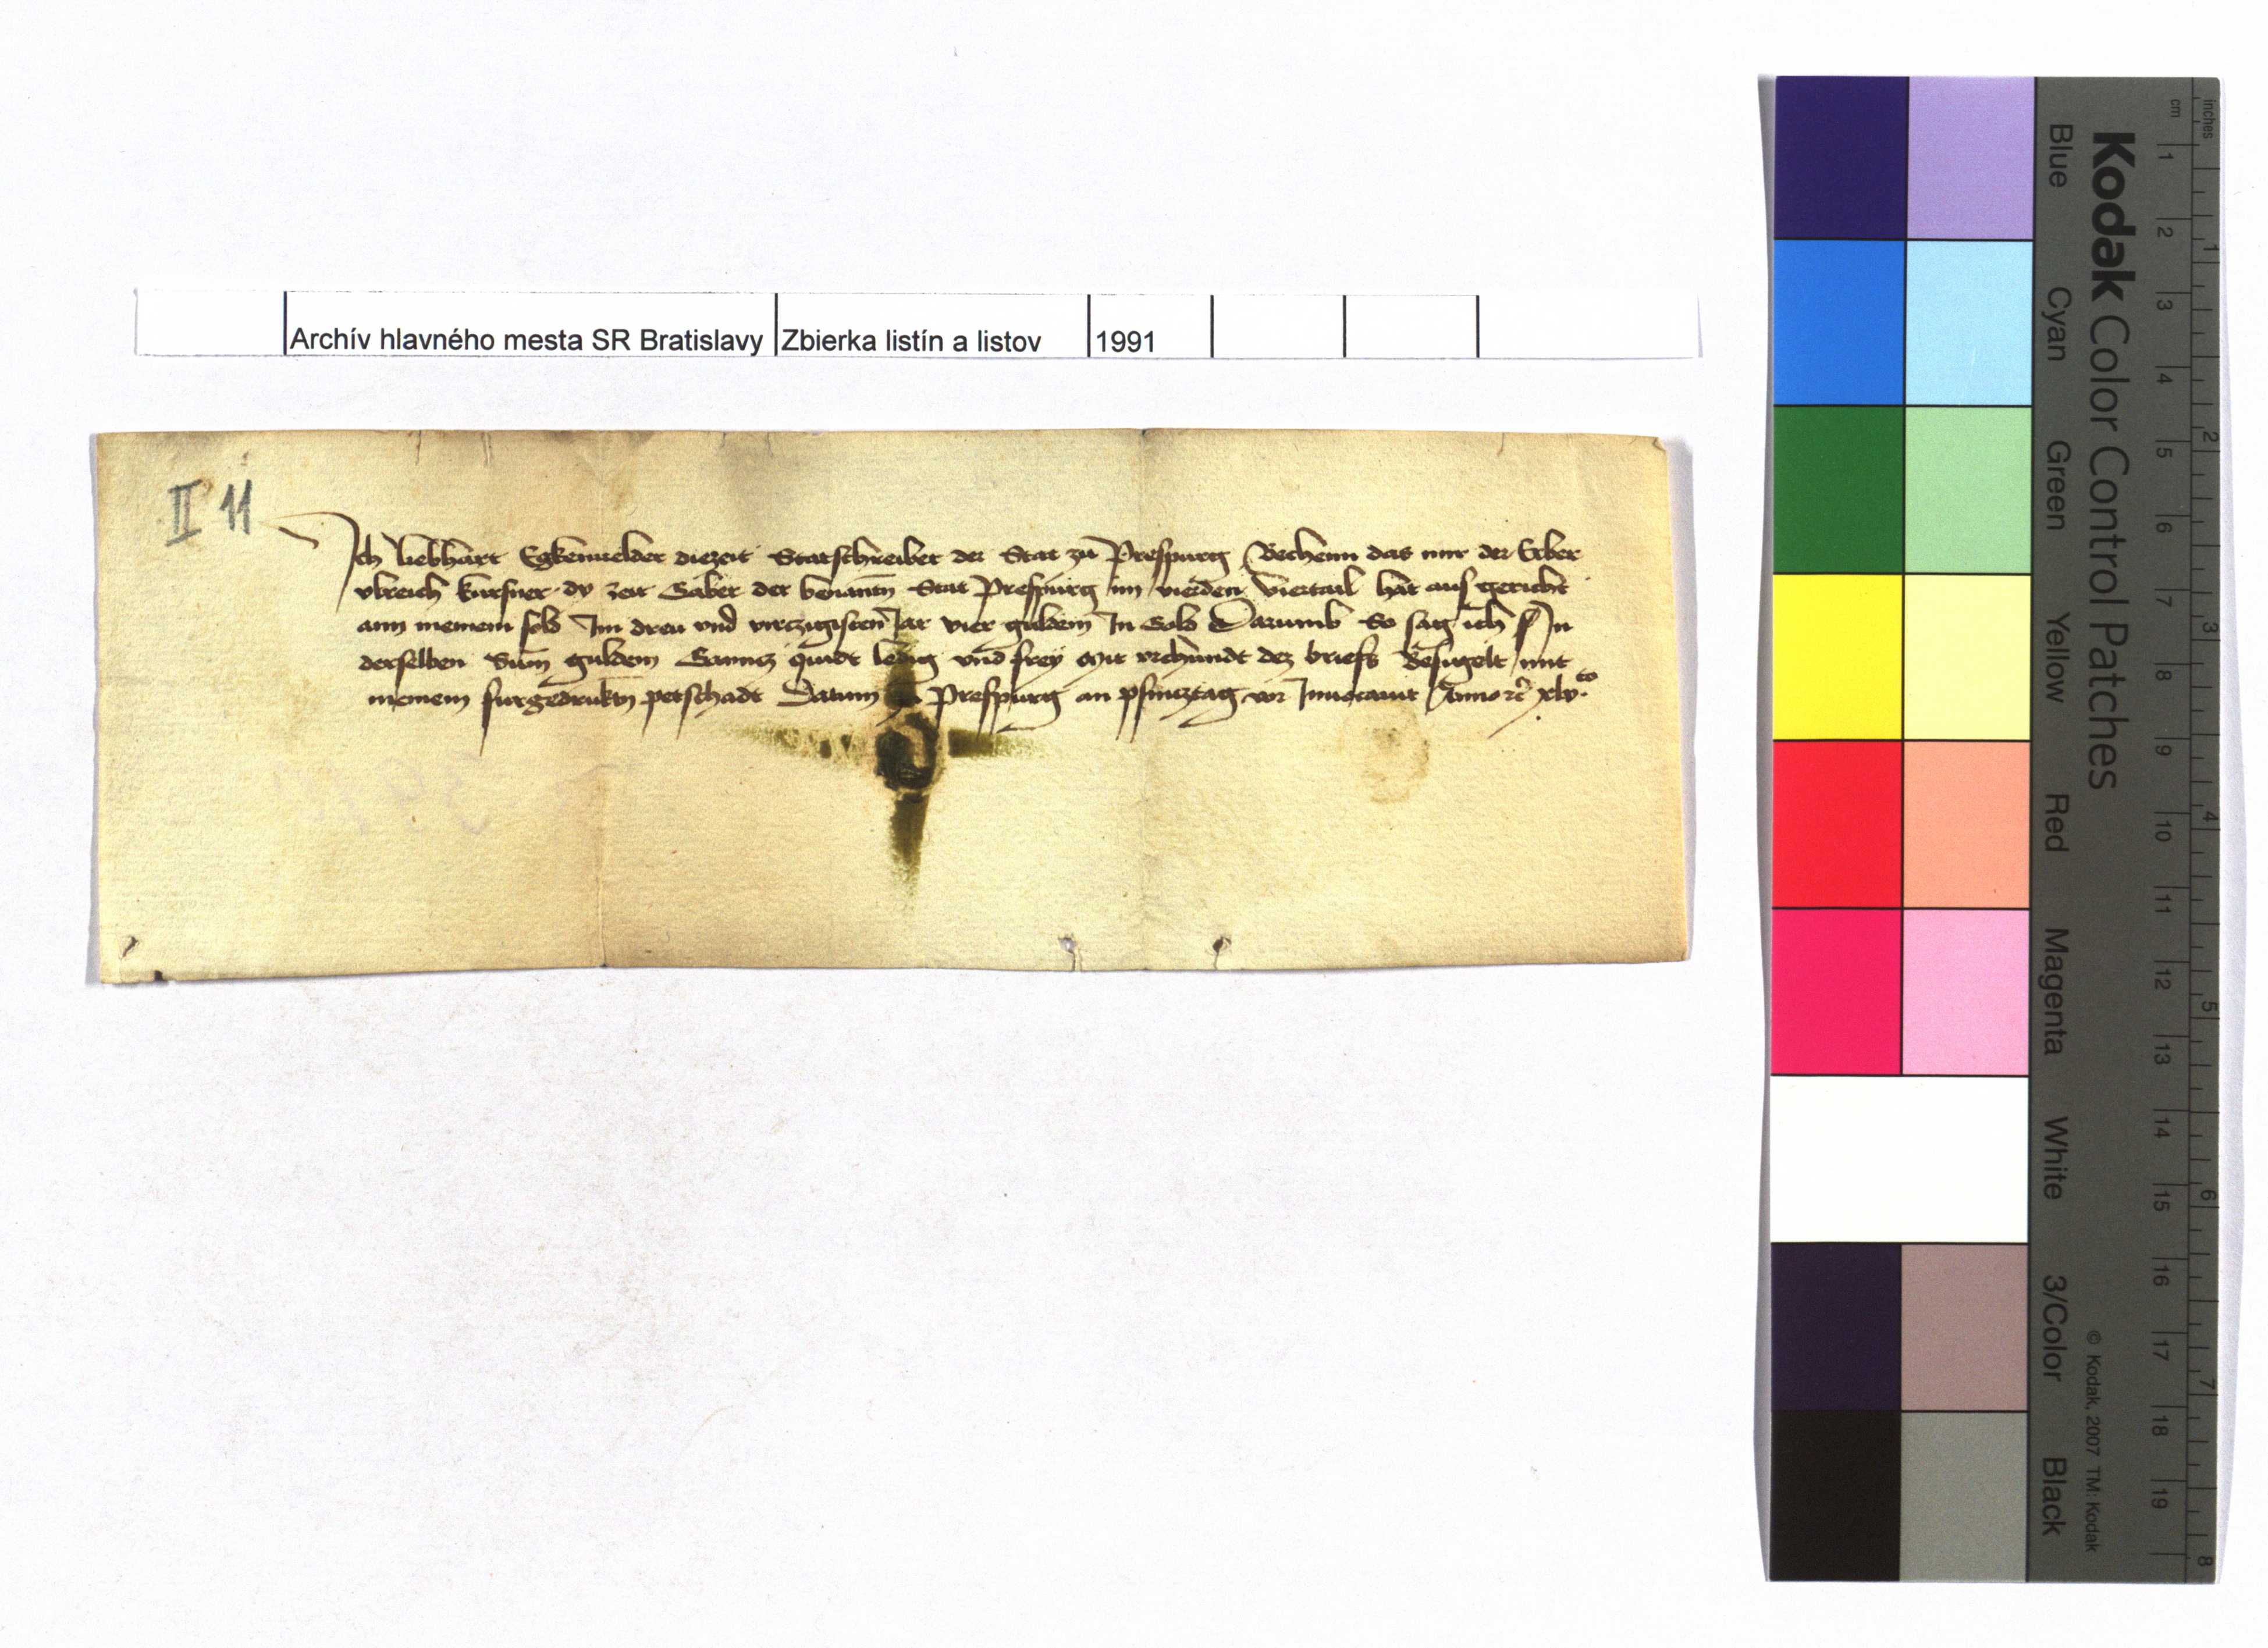 Archív hlavného mesta SR Bratislavy Zbierka listín a listov 1991
II 11
Ich liebhart Egkenuelder diezeit Statschreiber der Stat zu Prespurg Bechenn das mir der Erber
vlreich kursner dy zeit Gaber der benantn Stat Prespurg im vierden viertail hat ausgericht
ann meinem sold Im dreu vnd virczigisten Jar vier guldein In Gold Darumb So sag ich In
derselben Sum guldein Gancz quidt ledig vnd frey Mit vrchundt dez briefs Besigelt mit
meinem furgedruktn petschadt Datum zu Prespurg an pfincztag vor Inuocauit Anno rc xlv.to
Kodak Color Control Patches
Blue Cyan Green Yellow Red Magenta White 3/Color Black
© Kodak, 2007 TM: Kodak
cm 1 2 3 4 5 6 7 8 9 10 11 12 13 14 15 16 17 18 19
inches 1 2 3 4 5 6 7 8